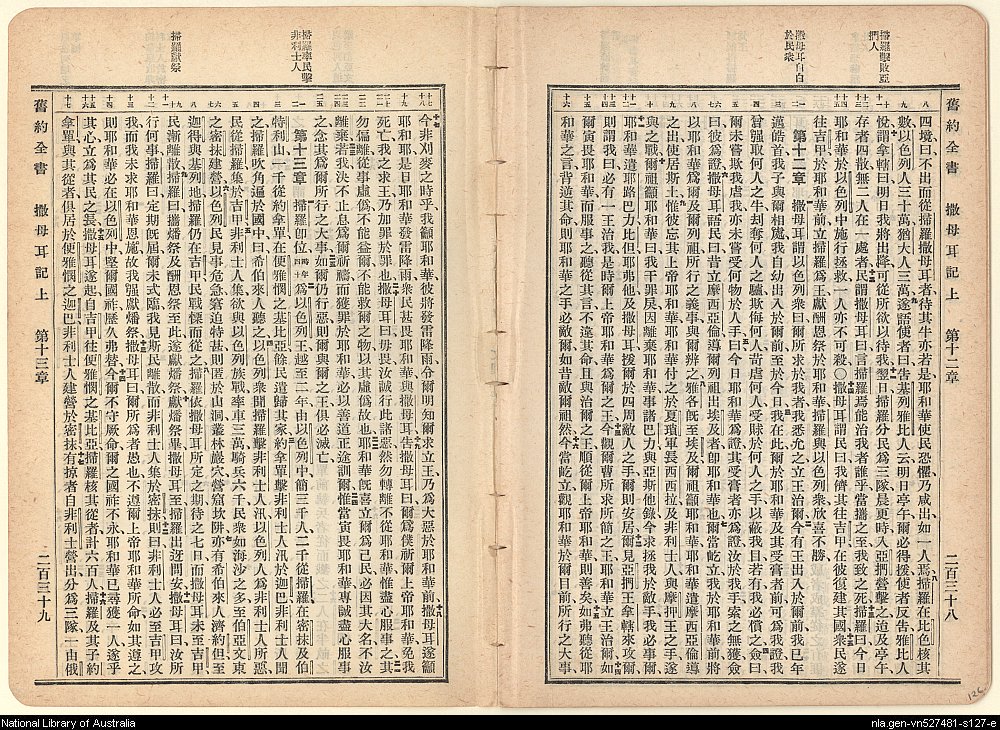 掃羅擊敗亞
捫人
撒母耳自白
於民衆
舊約全書 撒母耳記上 第十二章 二百三十八
四境曰不出而從掃羅撒母耳者待其牛亦若是耶和華使民恐懼乃咸出如一人焉掃羅在比色核其
數以色列人三十萬猶大人三萬遂語使者曰告基列雅比人云明日亭午爾必得援使者反告雅比人
悅謂拿轄曰明日我將出降可從所欲以待我翌日掃羅分民爲三隊晨更時入亞捫營擊之迫及亭午
存者四散無二人在一處者民謂撒母耳曰言掃羅焉能治我者誰乎當攜之至我致之死掃羅曰今日
耶和華於以色列中施行拯救一人亦不可殺○撒母耳謂民曰我儕其往吉甲在彼復建其國衆民遂
往吉甲於耶和華前立掃羅爲王獻酬恩祭於耶和華掃羅與以色列衆欣喜不勝
第十二章 撒母耳謂以色列衆曰爾所求於我者我悉允之立王治爾今有王出入於爾前我已年
邁皓首我子與爾相處我自幼出入於爾前至於今日我在此爾於耶和華及其受膏者前可爲我證我
曾强取何人之牛刦奪何人之驢欺侮何人苛虐何人受賕於何人之手以蔽我目若有我必償之僉曰
爾未嘗欺我虐我亦未嘗受何物於人手曰今日耶和華爲證其受膏者亦爲證汝於我手索之無獲僉
曰彼爲證撒母耳語民曰昔立摩西亞倫導爾列祖出埃及者卽耶和華也爾當屹立我於耶和華前將
以耶和華爲爾及爾列祖所行之義事與爾辨之雅各旣至埃及爾列祖籲耶和華耶和華遣摩西亞倫導
之出埃及使居斯土惟彼忘其上帝耶和華耶和華付之於夏瑣軍長西西拉及非利士人與摩押王之手遂
與之戰爾祖籲耶和華曰我干罪戾因離棄耶和華事諸巴力與亞斯他錄今求拯我於敵手我必事爾
耶和華遣耶路巴力比但耶弗他及撒母耳援爾於四周敵人之手爾則安居爾見亞捫王拿轄來攻爾
則謂我曰必有一王治我是時爾上帝耶和華爲爾之王今觀爾所求所簡之王耶和華立王治爾如
爾寅畏耶和華而服事之聽從其言不違其命且與治爾之王順從爾上帝耶和華則善矣如弗聽從耶
和華之言背逆其命則耶和華之手必敵爾如昔敵爾祖然今當屹立觀耶和華於爾目前所行之大事
掃羅率民擊
非利士人
掃羅獻祭
今非刈麥之時乎我籲耶和華彼將發雷降雨分明知爾求立王乃爲大惡於耶和華前撒母耳遂籲
耶和華是日耶和華發雷降雨衆民甚畏耶和華與撒母耳告撒母耳曰爾爲僕祈爾上帝耶和華免我
死亡我之求王乃加罪於罪也撒母耳曰毋畏汝誠行此諸惡然勿轉離不從耶和華惟盡心服事之其
勿偏離從事虛僞不能益爾不能救爾之物以其虛僞故也耶和華旣喜立爾爲己民必因其大名不汝
離棄若我決不止息爲爾祈禱而獲罪於耶和華必以善道正途訓爾惟當寅畏耶和華專誠盡心服事
之念其爲爾所行之大事如爾仍行惡則爾與爾之王俱必滅亡
第十三章 掃羅卽位時年四十爲以色列王越至二年由以色列中簡三千人二千從掃羅在密抹及伯
特利山一千從約拿單在便雅憫之基比亞餘民遣歸其家約拿單擊非利士人汛於迦巴非利士人聞
之掃羅吹角遍於國中曰希伯來人聽之以色列衆聞掃羅擊非利士人汛以色列人爲非利士人所惡
民從掃羅集於吉甲非利士人集欲與以色列族戰率車三萬騎兵六千民衆如海沙之多至伯亞文東
之密抹建營以色列民見事危急窘迫特甚則匿於山洞叢林巖穴營窟坎阱亦有希伯來人濟約但至
迦得與基列地掃羅仍在吉甲民戰慄而從之掃羅依撒母耳所定之期待之七日而撒母耳未至吉甲
民漸離散掃羅曰攜燔祭及酬恩祭至此遂獻燔祭獻燔祭畢撒母耳至掃羅出迓問安撒母耳曰汝所
行何事掃羅曰定期旣屆爾未式臨我見斯民離散而非利士人集於密抹則曰非利士人必至吉甲攻
我而我未求耶和華施恩故我强獻燔祭撒母耳曰爾所爲者愚也不遵爾上帝耶和華所命如其遵之
則耶和華必在以色列中堅爾國祚歷久弗替今爾不守厥命爾之國祚不永耶和華已尋獲一人遂乎
其心立爲其民之長撒母耳遂起自吉甲往便雅憫之基比亞掃羅核其從者計六百人掃羅及其子約
拿單與其從者俱居於便雅憫之迦巴非利士人建營於密抹有掠者自非利士營出分爲三隊一由俄
舊約全書 撒母耳記上 第十三章 二百三十九
126
National Library of Australia
nla.gen-vn527481-s127-e